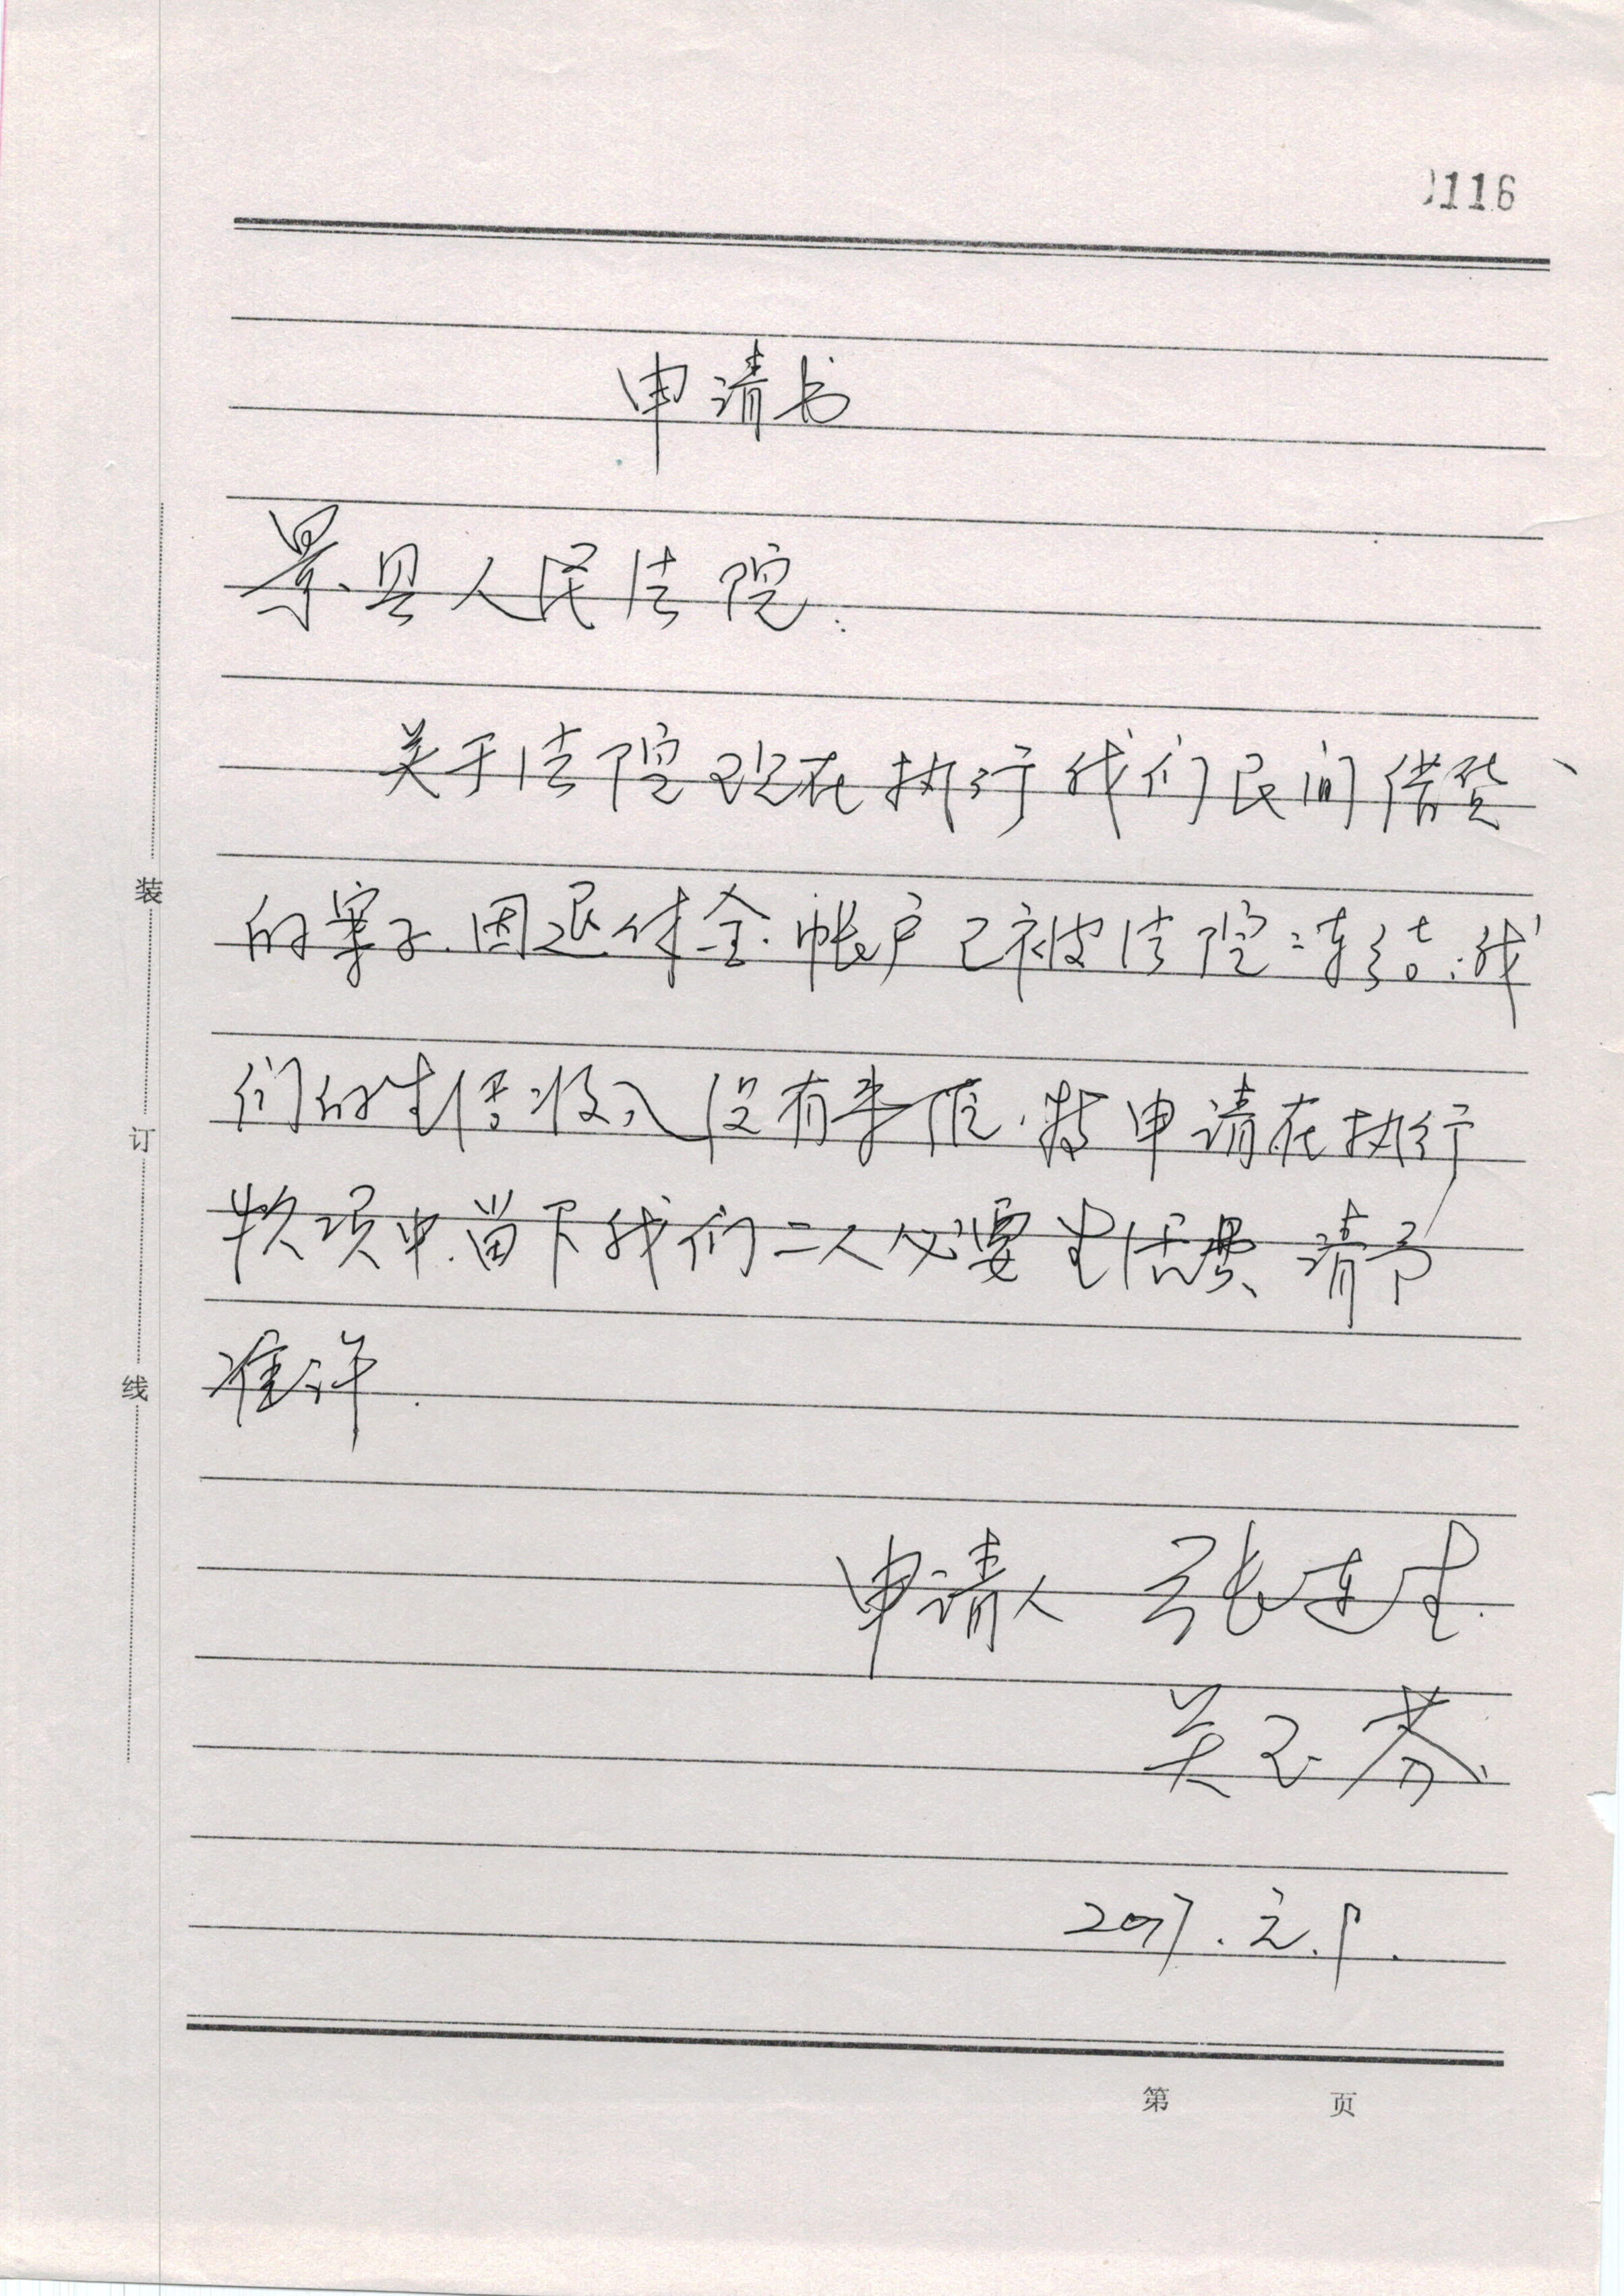 116
申请书
景县人民法院:
关于法院现在执行我们民间借贷
的案子.因退休金.帐户已被法院冻结.我
们的生活收入没有来源.特申请在执行
款项中.留下我们二人必要生活费、请予
准许.
申请人 张连生.
关玉芬.
2017.元.9.
装
订
线
第 页